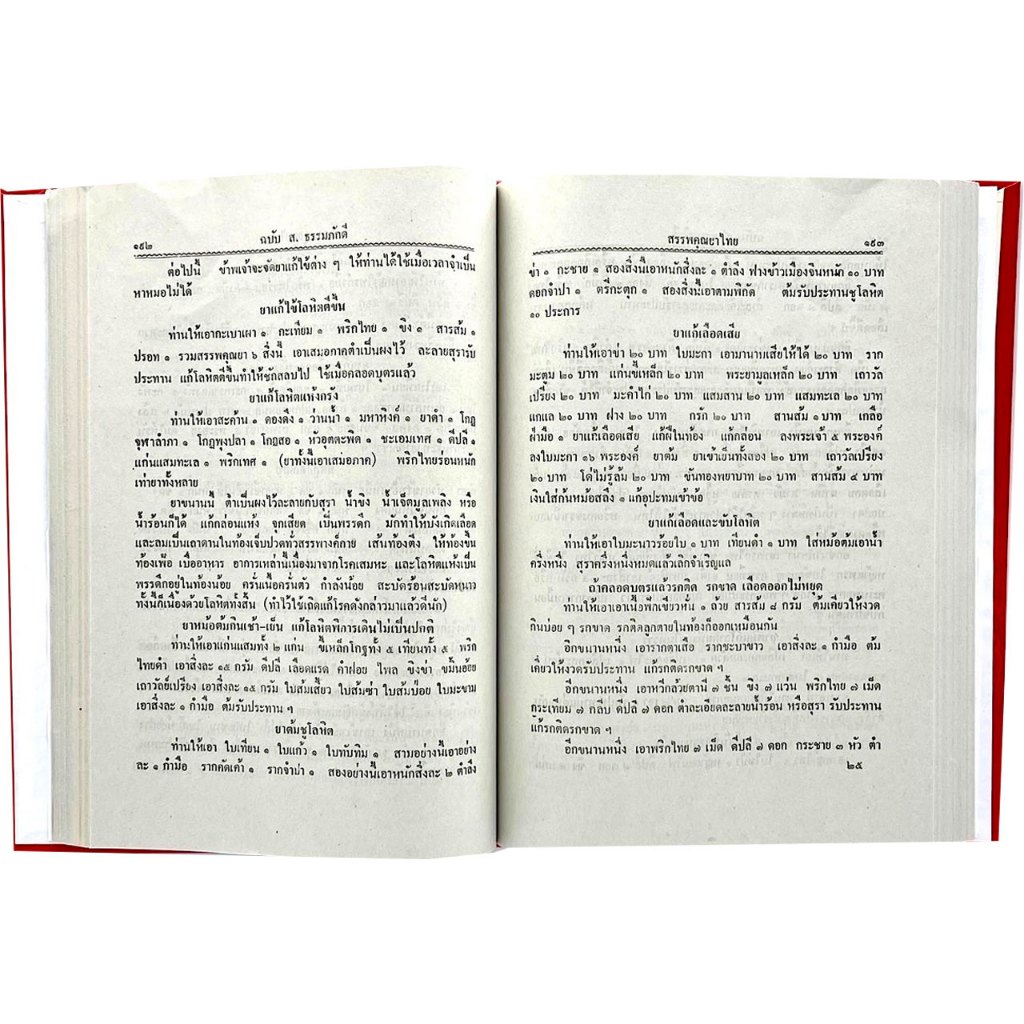 ๑๙๒ ฉบับ ส. ธรรมภักดี
ต่อไปนี้ ข้าพเจ้าจะจัดยาแก้ไข้ต่าง ๆ ให้ท่านได้ใช้เมื่อเวลาจำเป็น
หาหมอไม่ได้
ยาแก้ไข้โลหิตตีขึ้น
ท่านให้เอากะเบาเผา ๑ กะเทียม ๑ พริกไทย ๑ ขิง ๑ สารส้ม ๑
ปรอท ๑ รวมสรรพคุณยา ๖ สิ่งนี้ เอาเสมอภาคตำเป็นผงไว้ ละลายสุรารับ
ประทาน แก้โลหิตตีขึ้นทำให้ชักสลบไป ใช้เมื่อคลอดบุตรแล้ว
ยาแก้โลหิตแห้งกรัง
ท่านให้เอาสะค้าน ๑ ดองดึง ๑ ว่านน้ำ ๑ มหาหิงค์ ๑ ยาดำ ๑ โกฎ
จุฬาลำภา ๑ โกฎพุงปลา ๑ โกฎสอ ๑ หัวอุตตะพิด ๑ ชะเอมเทศ ๑ ดีปลี ๑
แก่นแสมทะเล ๑ พริกเทศ ๑ (ยาทั้งนี้เอาเสมอภาค) พริกไทยร่อนหนัก
เท่ายาทั้งหลาย
ยาขนานนี้ ตำเป็นผงไว้ละลายกับสุรา น้ำขิง น้ำเจ็ตมูลเพลิง หรือ
น้ำร้อนก็ได้ แก้กล่อนแห้ง จุกเสียด เป็นพรรดึก มักทำให้บังเกิดเลือด
และลมเป็นเถาดานในท้องเจ็บปวดทั่วสรรพางค์กาย เส้นท้องตึง ให้ท้องขึ้น
ท้องเฟ้อ เบื่ออาหาร อาการเหล่านี้เนื่องมาจากโรคเสมหะ และโลหิตแห้งเป็น
พรรดึกอยู่ในท้องน้อย ครั่นเนื้อครั่นตัว กำลังน้อย สะบัดร้อนสะบัดหนาว
ทั้งนี้ก็เนื่องด้วยโลหิตทั้งสิ้น (ทำไว้ใช้เถิดแก้โรคดังกล่าวมาแล้วดีนัก)
ยาหม้อต้มกินเช้า-เย็น แก้โลหิตพิการเดินไม่เป็นปกติ
ท่านให้เอาแก่นแสมทั้ง ๒ แก่น ขี้เหล็กโกฐทั้ง ๕ เทียนทั้ง ๕ พริก
ไทยดำ เอาสิ่งละ ๑๕ กรัม ดีปลี เลือดแรด คำฝอย ไพล ขิงข่า ขมิ้นอ้อย
เถาวัลย์เปรียง เอาสิ่งละ ๑๕ กรัม ใบส้มเสี้ยว ใบส้มซ่า ใบส้มป่อย ใบมะขาม
เอาสิ่งละ ๑ กำมือ ต้มรับประทาน ฯ
ยาต้มชูโลหิต
ท่านให้เอา ใบเทียน ๑ ใบแก้ว ๑ ใบทับทิม ๑ สามอย่างนี้เอาอย่าง
ละ ๑ กำมือ รากคัดเค้า ๑ รากจำปา ๑ สองอย่างนี้เอาหนักสิ่งละ ๒ ตำลึง
สรรพคุณยาไทย ๑๙๓
ข่า ๑ กะชาย ๑ สองสิ่งนี้เอาหนักสิ่งละ ๑ ตำลึง ฟางข้าวเมืองจีนหนัก ๑๐ บาท
ดอกจำปา ๑ ตรีกะตุก ๑ สองสิ่งนี้เอาตามพิกัด ต้มรับประทานชูโลหิต
๑๐ ประการ
ยาแก้เลือดเสีย
ท่านให้เอาข่า ๒๐ บาท ใบมะกา เอามานาบเสียให้ได้ ๒๐ บาท ราก
มะตูม ๒๐ บาท แก่นขี้เหล็ก ๒๐ บาท พระยามูลเหล็ก ๒๐ บาท เถาวัล
เปรียง ๒๐ บาท มะคำไก่ ๒๐ บาท แสมสาน ๒๐ บาท แสมทะเล ๒๐ บาท
แกแล ๒๐ บาท ฝาง ๒๐ บาท กรัก ๒๐ บาท สานส้ม ๑ บาท เกลือ
ฝ่ามือ ๑ ยาแก้เลือดเสีย แก้ฝีในท้อง แก้กล่อน ลงพระเจ้า ๕ พระองค์
ลงใบมะกา ๑๖ พระองค์ ยาต้ม ยาเข้าเย็นทั้งสอง ๒๐ บาท เถาวัลเปรียง
๒๐ บาท โด่ไม่รู้ล้ม ๒๐ บาท ขันทองพยาบาท ๒๐ บาท สานส้ม ๔ บาท
เงินใส่ก้นหม้อสลึง ๑ แก้อปะทมเข้าข้อ
ยาแก้เลือดและขับโลหิต
ท่านให้เอาใบมะนาวร้อยใบ ๑ บาท เทียนดำ ๑ บาท ใส่หม้อต้มเอาน้ำ
ครึ่งหนึ่ง สุราครึ่งหนึ่งหมดแล้วเลิกจำเริญแล
ถ้าคลอดบุตรแล้วรกติด รกขาด เลือดออกไม่หยุด
ท่านให้เอาเอาเนื้อฟักเขียวหั่น ๑ ถ้วย สารส้ม ๘ กรัม ต้มเคี่ยวให้งวด
กินบ่อย ๆ รกขาด รกติดลูกตายในท้องก็ออกเหมือนกัน
อีกขนานหนึ่ง เอารากตาเสือ รากชะบาขาว เอาสิ่งละ ๑ กำมือ ต้ม
เคี่ยวให้งวดรับประทาน แก้รกติดรกขาด ฯ
อีกขนานหนึ่ง เอาหวีกล้วยตานี ๗ ชั้น ขิง ๗ แว่น พริกไทย ๗ เม็ด
กระเทียม ๗ กลีบ ดีปลี ๗ ดอก ตำละเอียดละลายน้ำร้อน หรือสุรา รับประทาน
แก้รกติดรกขาด ฯ
อีกขนานหนึ่ง เอาพริกไทย ๗ เม็ด ดีปลี ๗ ดอก กระชาย ๓ หัว ตำ
๒๕